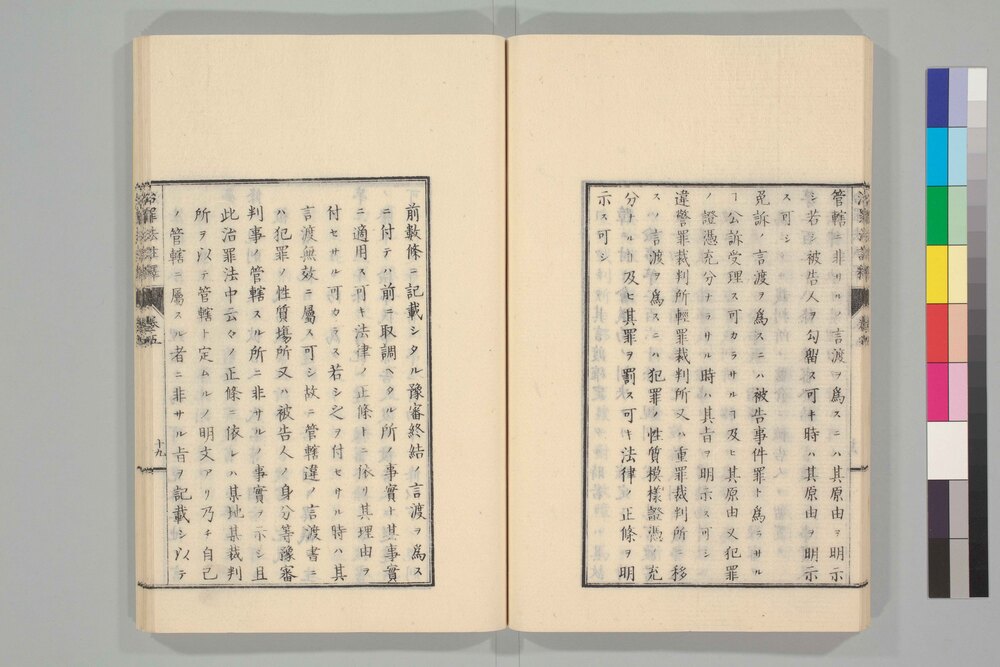 管轄ニ非サルノ言渡ヲ爲スニハ其原由ヲ明示
シ若シ被告人ヲ勾留ス可キ時ハ其原由ヲ明示
ス可シ
免訴ノ言渡ヲ爲スニハ被告事件罪ト爲ラサル
ヿ公訴受理ス可カラサルヿ及ヒ其原由又犯罪
ノ證憑充分ナラサル時ハ其旨ヲ明示ス可シ
違警罪裁判所輕罪裁判所又ハ重罪裁判所ニ移
スノ言渡ヲ爲スニハ犯罪ノ性質模樣證憑ノ充
分ナルヿ及ヒ其罪ヲ罰ス可キ法律ノ正條ヲ明
示ス可シ
前數條ニ記載シタル豫審終結ノ言渡ヲ爲ス
ニ付テハ前ニ取調ヘタル所ノ事實ト其事實
ニ適用ス可キ法律ノ正條トニ依リ其理由ヲ
付セサル可カラス若シ之ヲ付セサル時ハ其
言渡無效ニ屬ス可シ故ニ管轄違ノ言渡書ニ
ハ犯罪ノ性質場所又ハ被告人ノ身分等豫審
判事ノ管轄スル所ニ非サルノ事實ヲ示シ且
此治罪法中云々ノ正條ニ依レハ某地某裁判
所ヲ以テ管轄ト定ムルノ明文アリ乃チ自己
ノ管轄ニ屬スル者ニ非サル旨ヲ記載シ以テ
卷五
十九